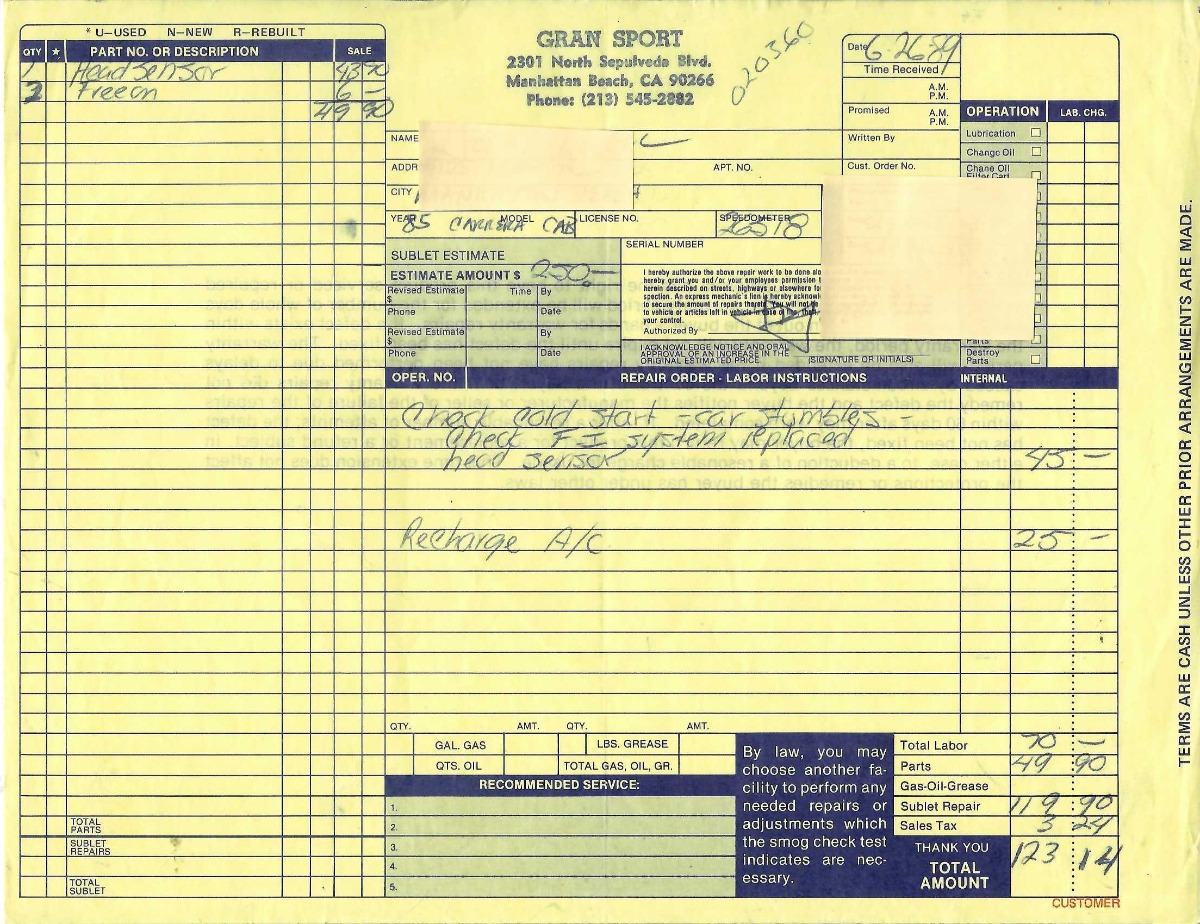 * U—USED N—NEW R—REBUILT
QTY ★ PART NO. OR DESCRIPTION SALE
1 Head sensor 43 90
2 Freon 6 —
49 90
TOTAL PARTS
SUBLET REPAIRS
TOTAL SUBLET
GRAN SPORT
2301 North Sepulveda Blvd.
Manhattan Beach, CA 90266
Phone: (213) 545-2882
020360
Date 6-26-89
Time Received
A.M.
P.M.
Promised A.M.
P.M.
Written By
Cust. Order No.
OPERATION LAB. CHG.
Lubrication
Change Oil
Chane Oil
Filter Cart
Parts
Destroy
Parts
NAME
ADDR
APT. NO.
CITY
YEAR MODEL LICENSE NO. SPEEDOMETER
85 CARRERA CAB
SERIAL NUMBER
SUBLET ESTIMATE
ESTIMATE AMOUNT $ 250.—
Revised Estimate Time By
$
Phone Date
Revised Estimate By
$
Phone Date
I hereby authorize the above repair work to be done alo
hereby grant you and/or your employees permission t
herein described on streets, highways or elsewhere fo
spection. An express mechanic's lien is hereby acknowl
to secure the amount of repairs thereto. You will not be
to vehicle or articles left in vehicle in case of fire, theft
your control.
Authorized By
I ACKNOWLEDGE NOTICE AND ORAL
APPROVAL OF AN INCREASE IN THE
ORIGINAL ESTIMATED PRICE. (SIGNATURE OR INITIALS)
OPER. NO. REPAIR ORDER - LABOR INSTRUCTIONS INTERNAL
Check cold start - car stumbles -
Check F-I system replaced
head sensor 45 —
Recharge A/C 25 —
QTY. AMT. QTY. AMT.
GAL. GAS LBS. GREASE
QTS. OIL TOTAL GAS, OIL, GR.
RECOMMENDED SERVICE:
1.
2.
3.
4.
5.
By law, you may
choose another fa-
cility to perform any
needed repairs or
adjustments which
the smog check test
indicates are nec-
essary.
Total Labor 70 —
Parts 49 90
Gas-Oil-Grease
Sublet Repair 119 90
Sales Tax 3 24
THANK YOU
TOTAL AMOUNT 123 14
CUSTOMER
TERMS ARE CASH UNLESS OTHER PRIOR ARRANGEMENTS ARE MADE.